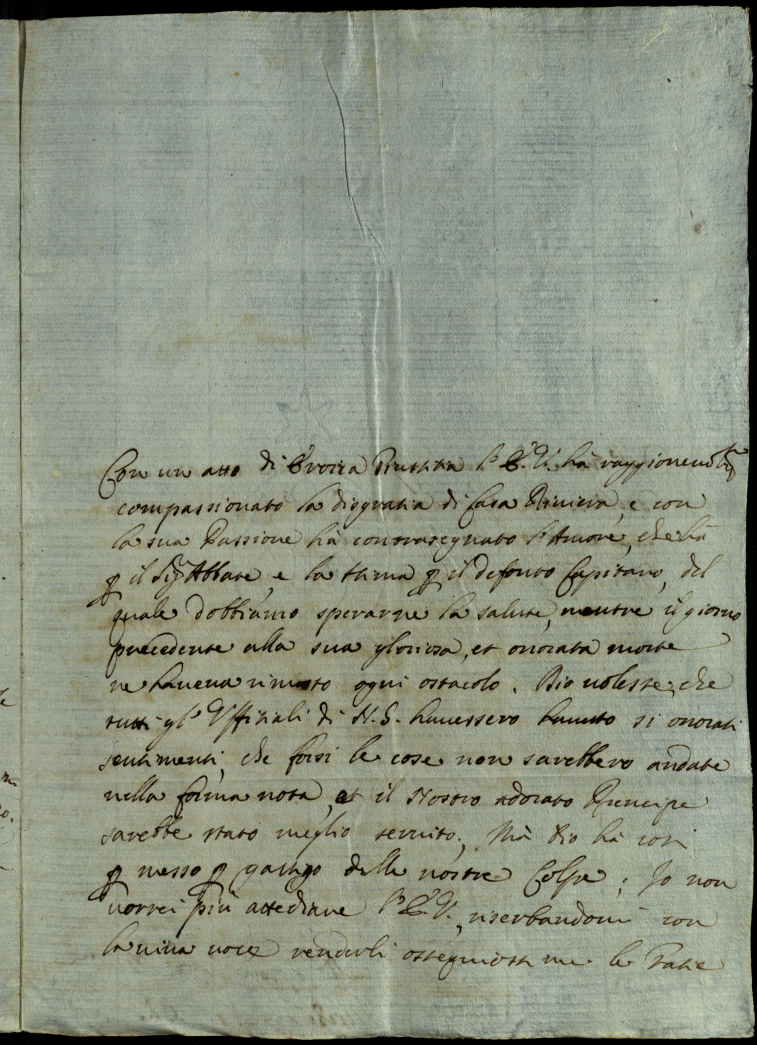 Con un atto di eroica Giustitia l'E.V. hà raggionevol.te
compassionato la disgratia di Casa Riviera, e con
la sua Passione hà contrasegnato l'Amore, che hà
p il Sig.r Abbate, e la stima p il defonto Capitano, del
quale dobbiamo sperarne la salute, mentre il giorno
precedente alla sua gloriosa, et onorata morte
ne haueua rimosto ogni ostacolo. Dio uolesse, che
tutti gl'Uffitiali di N.S. hauessero hauuto si onorati
sentimenti, che forsi le cose non sarebbero andate
nella forma nota, et il Nostro adorato Prencipe
sarebbe stato meglio seruito; Mà Dio hà così
p messo p gastigo delle nostre Colpe; Io non
uorrei più attediare l'E.V., riserbandomi con
la uiua uoce renderli ossequiosissime le gratie